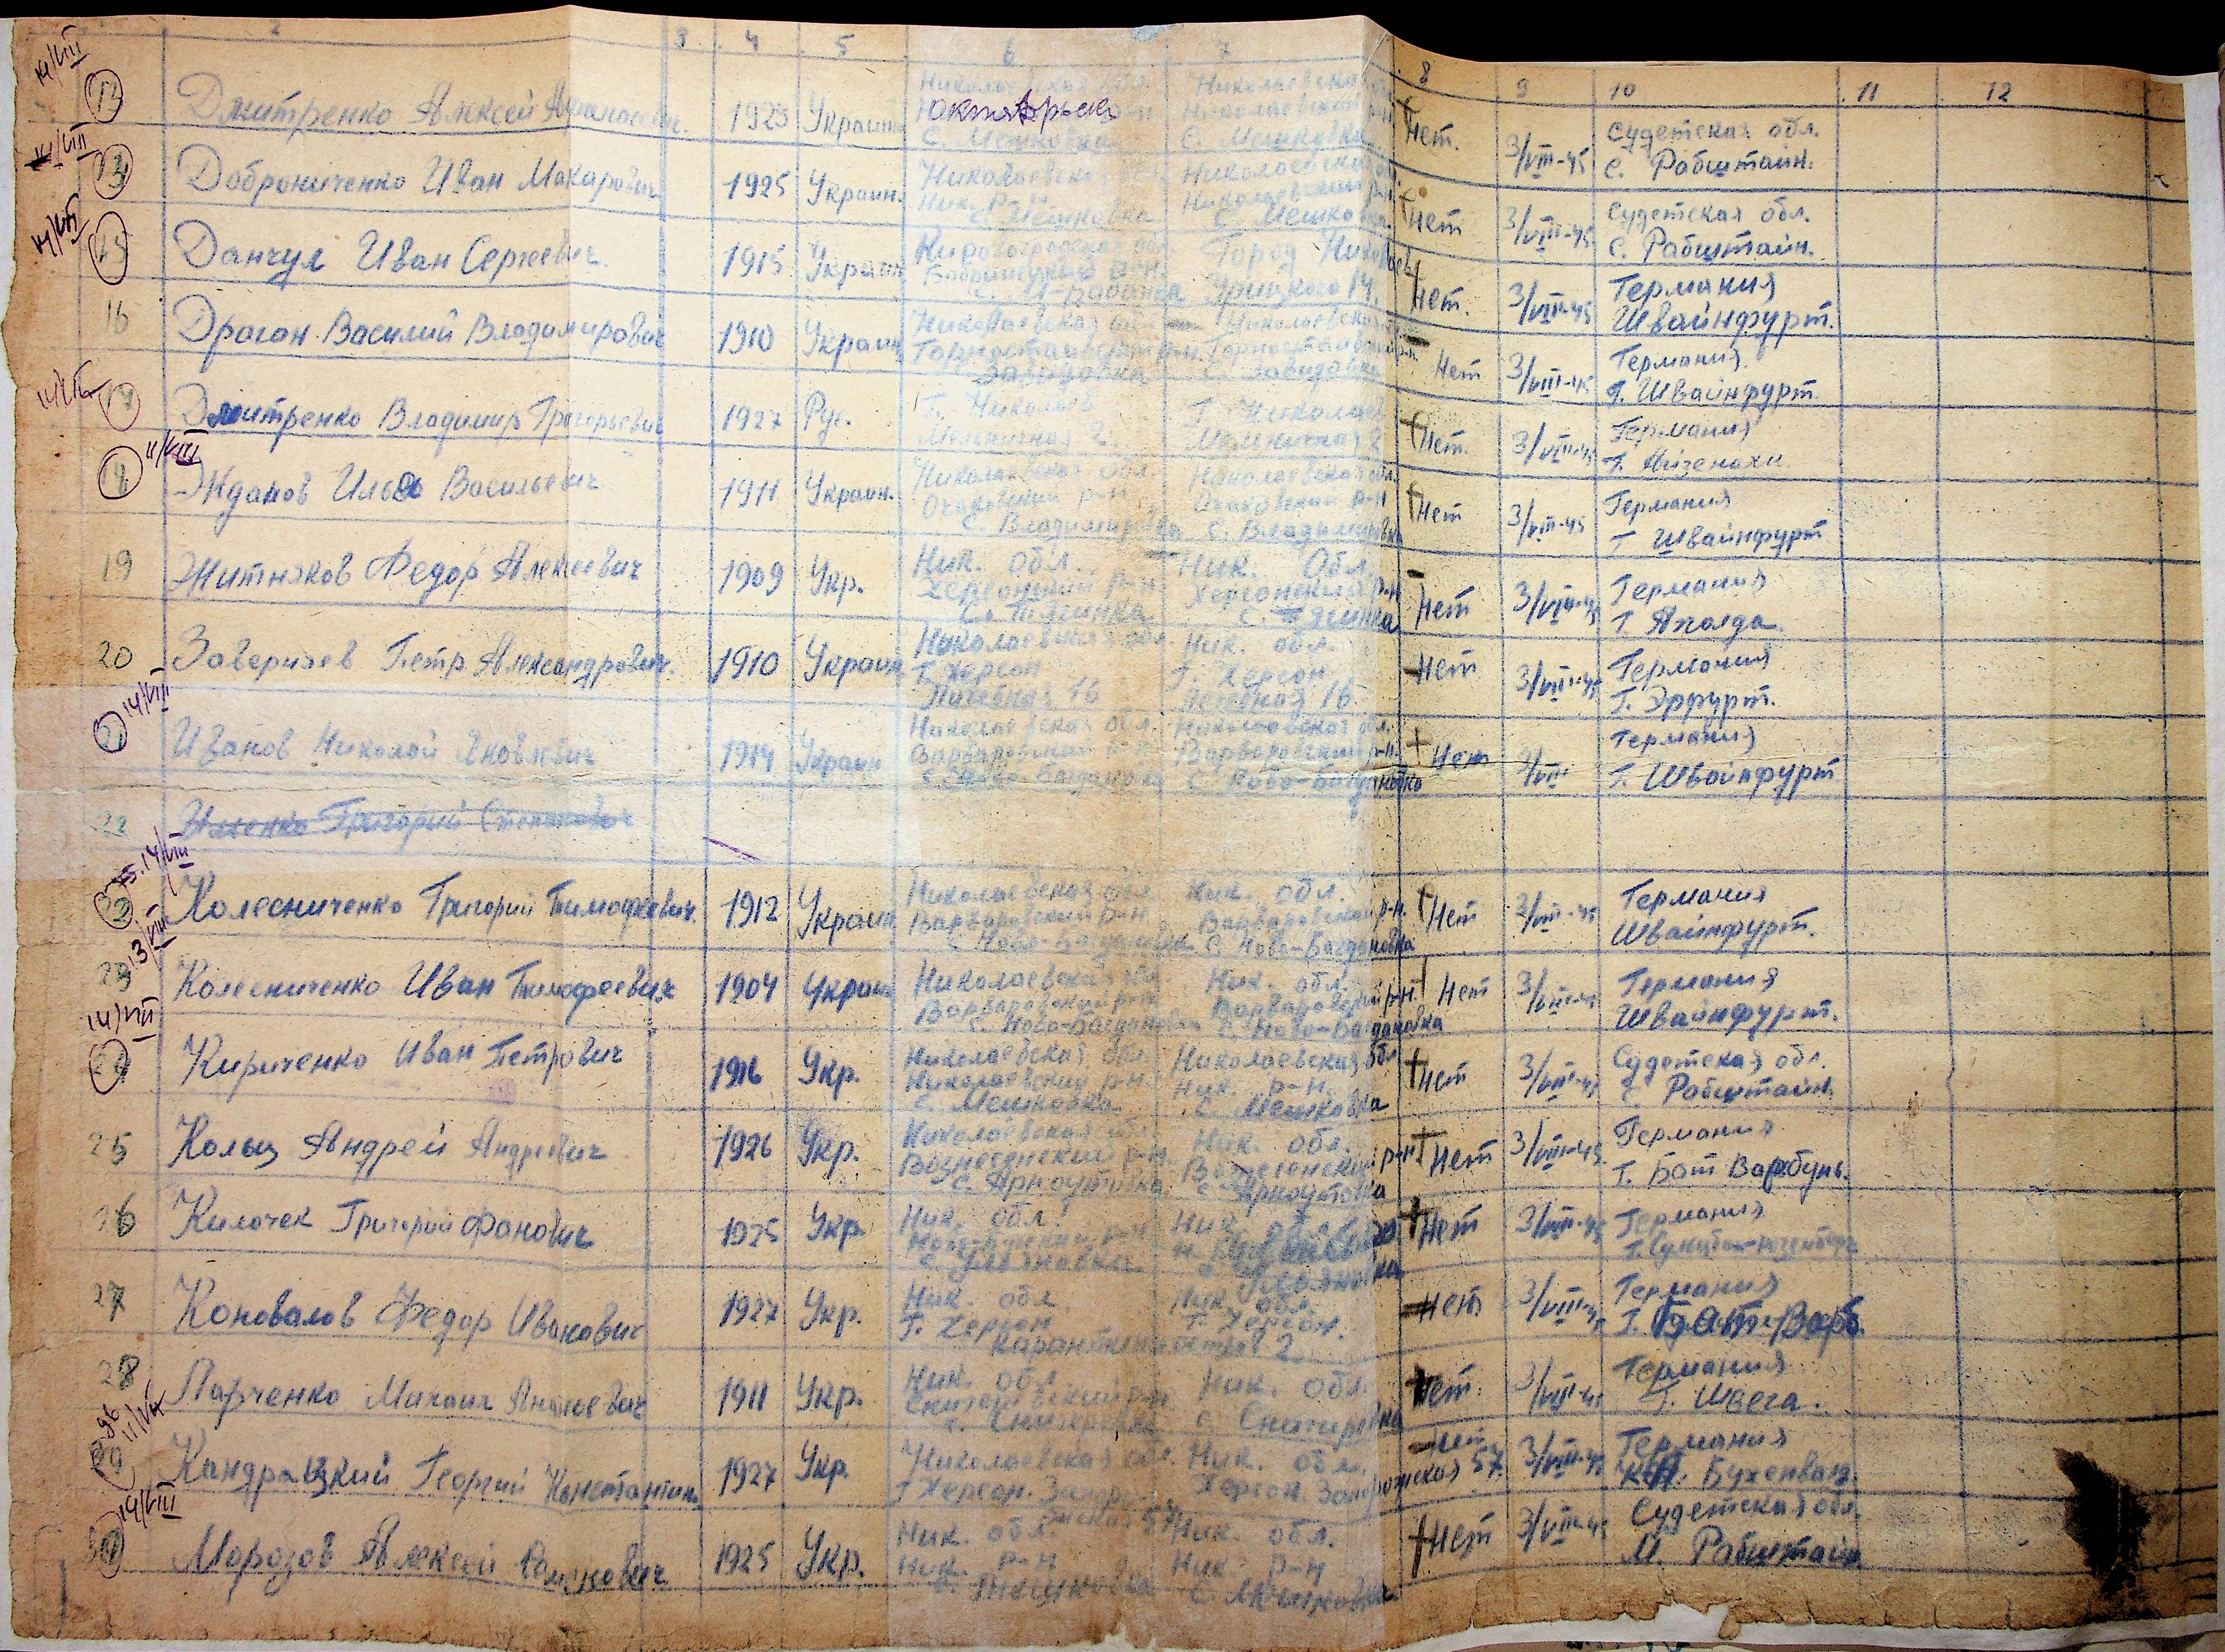 2 3 4 5 6 7 8 9 10 11 12
14/VIII
13 Дмитренко Алексей Афанасьевич. 1923 Украин. Николаевская обл. Николаевская обл. Нет. 3/VIII-45 Судетская обл.
Октябрьск Николаевский р-н с. Рабштайн.
С. Мешковка С. Мешковка
14/VIII
14 Доброниченко Иван Макарович 1925 Украин. Николаевская обл. Николаевская обл. Нет 3/VIII-45 Судетская обл.
Ник. р-н Николаевский р-н с. Рабштайн.
с. Мешковка С. Мешковка
14/VIII
15 Данчул Иван Сергеевич. 1915 Украин. Кировоградская обл. Город Николаев Нет. 3/VIII-45 Германия
Бобринецкий р-н. Урицкого 14. Швайнфурт.
16 Драган Василий Владимирович 1910 Украин. Николаевская обл. Николаевская Нет 3/VIII-45 Германия.
Горностаевский р-н. Горностаевский р-н г. Швайнфурт.
Завидовка с. Завидовка
17 Дмитренко Владимир Григорьевич 1927 Рус. Г. Николаев Г. Николаев Нет. 3/VIII-45 Германия
Мельничная 2. Мельничная 2
11/VIII
Жданов Илья Васильевич 1911 Украин. Николаевская обл. Николаевская обл. Нет 3/VIII-45 Германия
Очаковский р-н Очаковский р-н г Швайнфурт
с. Владимировка с. Владимировка
19 Житняков Федор Алексеевич 1909 Укр. Ник. обл. Ник. Обл. Нет 3/VIII-45 Германия
Херсонский р-н Херсонский р-н г. Апалда.
с. Тягинка с. Тягинка
20 Заверизев Петр Александрович. 1910 Украин Николаевская обл. Ник. обл. Нет 3/VIII-45 Германия
Г. Херсон Г. Херсон Г. Эрфурт.
16 16
14/VIII
21 Иванов Николай Яковлевич 1914 Украин Николаевская обл. Николаевская обл. Нет 3/VIII Германия
Варваровский р-н Варваровский р-н. Г. Швайнфурт
с. Ново-Богдановка с. Ново-Богдановка
22 Григорий Степанович
14/VIII
Колесниченко Григорий Тимофеевич. 1912 Украин Николаевская обл Ник. обл. Нет 3/VIII-45 Германия
Варваровский р-н. Варваровский р-н. Швайнфурт.
с. Ново-Богдановка с. Ново-Богдановка
13/VIII
23 Колесниченко Иван Тимофеевич 1904 Украин Николаевская обл. Ник. обл. Нет 3/VIII-45 Германия
Варваровский р-н Варваровский р-н. Швайнфурт.
с. Ново-Богдановка с. Ново-Богдановка
14/VIII
24 Кириченко Иван Петрович 1916 Укр. Николаевская обл Николаевская обл Нет 3/VIII-45 Судетская обл.
Николаевский р-н. Ник. р-н. с. Рабштайн.
с. Мешковка с. Мешковка
25 Кольц Андрей Андреевич 1926 Укр. Николаевская обл Ник. обл. Нет 3/VIII-45 Германия
Вознесенский р-н. Вознесенский р-н Г. Бат Варбунь.
с. Арнаутовка с. Арнаутовка
26 Килочек Григорий Фанович 1925 Укр. Ник. обл. Ник. обл. Нет 3/VIII-45 Германия
с. Ульяновка с. Ульяновка
27 Коновалов Федор Иванович 1927 Укр. Ник. обл Ник. обл. Нет 3/VIII-45 Германия
Г. Херсон Г. Херсон. Г. Бат-Варб.
2
28 Ларченко Михаил 1911 Укр. Ник. обл Ник. обл. Нет. 3/VIII-45 Германия
р-н с. Снигиревка
с. Снигиревка
11/VII
29 Кандрацкий Георгий Константин 1927 Укр. Николаевская обл. Ник. обл. Нет 3/VIII-45 Германия
г Херсон. Херсон. 57. Бухенвал.
57
14/VIII
30 Морозов Алексей 1925 Укр. Ник. обл. Ник. обл. Нет 3/VIII-45 Судетская обл.
Ник. р-н Ник р-н М. Рабштайн
с. Мешковка с. Мешковка.